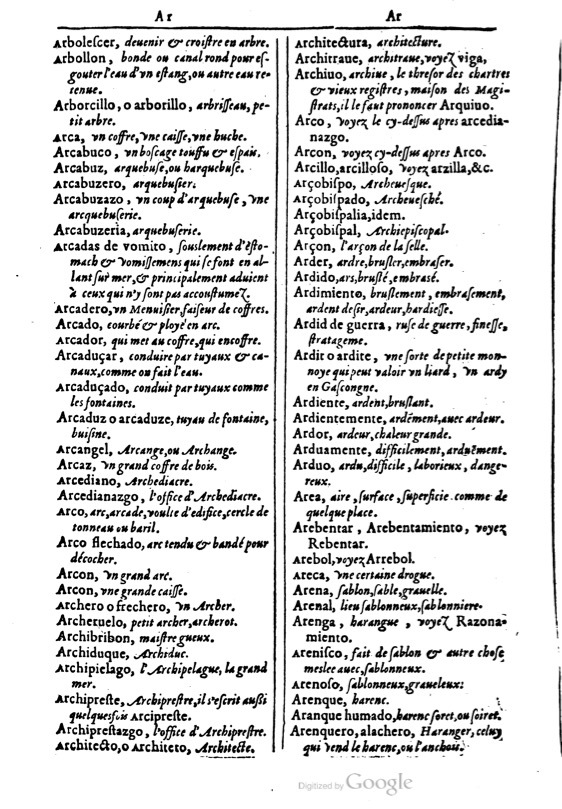 Ar
Arboleſcer, deuenir & croiſtre en arbre.
Arbollon, bonde ou canal rond pour eſ-
gouter l'eau d'vn eſtang, ou autre eau re-
tenue.
Arborcillo, o arborillo, arbriſſeau, pe-
tit arbre.
Arca, vn coffre, vne caiſſe, vne huche.
Arcabuco, vn boſcage touffu & eſpais.
Arcabuz, arquebuſe, ou harquebuſe.
Arcabuzero, arquebuſier.
Arcabuzazo, vn coup d'arquebuſe, vne
arcquebuſerie.
Arcabuzeria, arquebuſerie.
Arcadas de vomito, ſouslement d'eſto-
mach & vomiſſemens qui ſe font en al-
lant ſur mer, & principalement aduient
à ceux qui n'y ſont pas accouſtumez.
Arcadero, vn Menuiſier, faiſeur de coffres.
Arcado, courbé & ployé en arc.
Arcador, qui met au coffre, qui encoffre.
Arcaduçar, conduire par tuyaux & ca-
naux, comme ou fait l'eau.
Arcaduçado, conduit par tuyaux comme
les fontaines.
Arcaduz o arcaduze, tuyau de fontaine,
buiſine.
Arcangel, Arcange, ou Archange.
Arcaz, vn grand coffre de bois.
Arcediano, Archediacre.
Arcedianazgo, l'office d'Archediacre.
Arco, arc, arcade, voulte d'edifice, cercle de
tonneau ou baril.
Arco flechado, arc tendu & bandé pour
décocher.
Arcon, vn grand arc.
Arcon, vne grande caiſſe.
Archero o frechero, vn Archer.
Archeruelo, petit archer, archerot.
Archibribon, maiſtre gueux.
Archiduque, Archiduc.
Archipielago, l'Archipelague, la grand
mer.
Archipreſte, Archipreſtre, il s'eſcrit auſſi
quelquesfois Arcipreſte.
Archipreſtazgo, l'office d'Archipreſtre.
Architecto, o Architeto, Architecte.
Ar
Architectura, architecture.
Architraue, architraue, voyez viga,
Archiuo, archiue, le threſor des chartres
& vieux regiſtres, maiſon des Magi-
ſtrats, il le faut prononcer Arquiuo.
Arco, voyez le cy-deſſus apres arcedia-
nazgo.
Arcon, voyez cy-deſſus apres Arco.
Arcillo, arcilloſo, voyez arzilla, &c.
Arçobiſpo, Archeueſque.
Arçobiſpado, Archeueſché.
Arçobiſpalia, idem.
Arçobiſpal, Archiepiſcopal.
Arçon, l'arçon de la ſelle.
Arder, ardre, bruſler, embraſer.
Ardido, ars, bruſlé, embraſé.
Ardimiento, bruſlement, embraſement,
ardent deſir, ardeur, hardieſſe.
Ardid de guerra, ruſe de guerre, fineſſe,
ſtratageme.
Ardir o ardite, vne ſorte de petite mon-
noye qui peut valoir vn liard, vn ardy
en Gaſcongne.
Ardiente, ardent, bruſlant.
Ardientemente, ardément, auec ardeur.
Ardor, ardeur, chaleur grande.
Arduamente, difficilement, arduëment.
Arduo, ardu, difficile, laborieux, dange-
reux.
Area, aire, ſurface, ſuperficie comme de
quelque place.
Arebentar, Arebentamiento, voyez
Rebentar.
Arebol, voyez Arrebol.
Areca, vne certaine drogue.
Arena, ſablon, ſable, grauelle.
Arenal, lieu ſablonneux, ſablonniere.
Arenga, harangue, voyez Razona-
miento.
Areniſco, fait de ſablon & autre choſe
meslee auec, ſablonneux.
Arenoſo, ſablonneux, graueleux.
Arenque, harenc.
Aranque humado, harenc ſoret, ou ſoiret.
Arenquero, alachero, Haranger, celuy
qui vend le harenc, ou l'anchois.
Digitized by Google